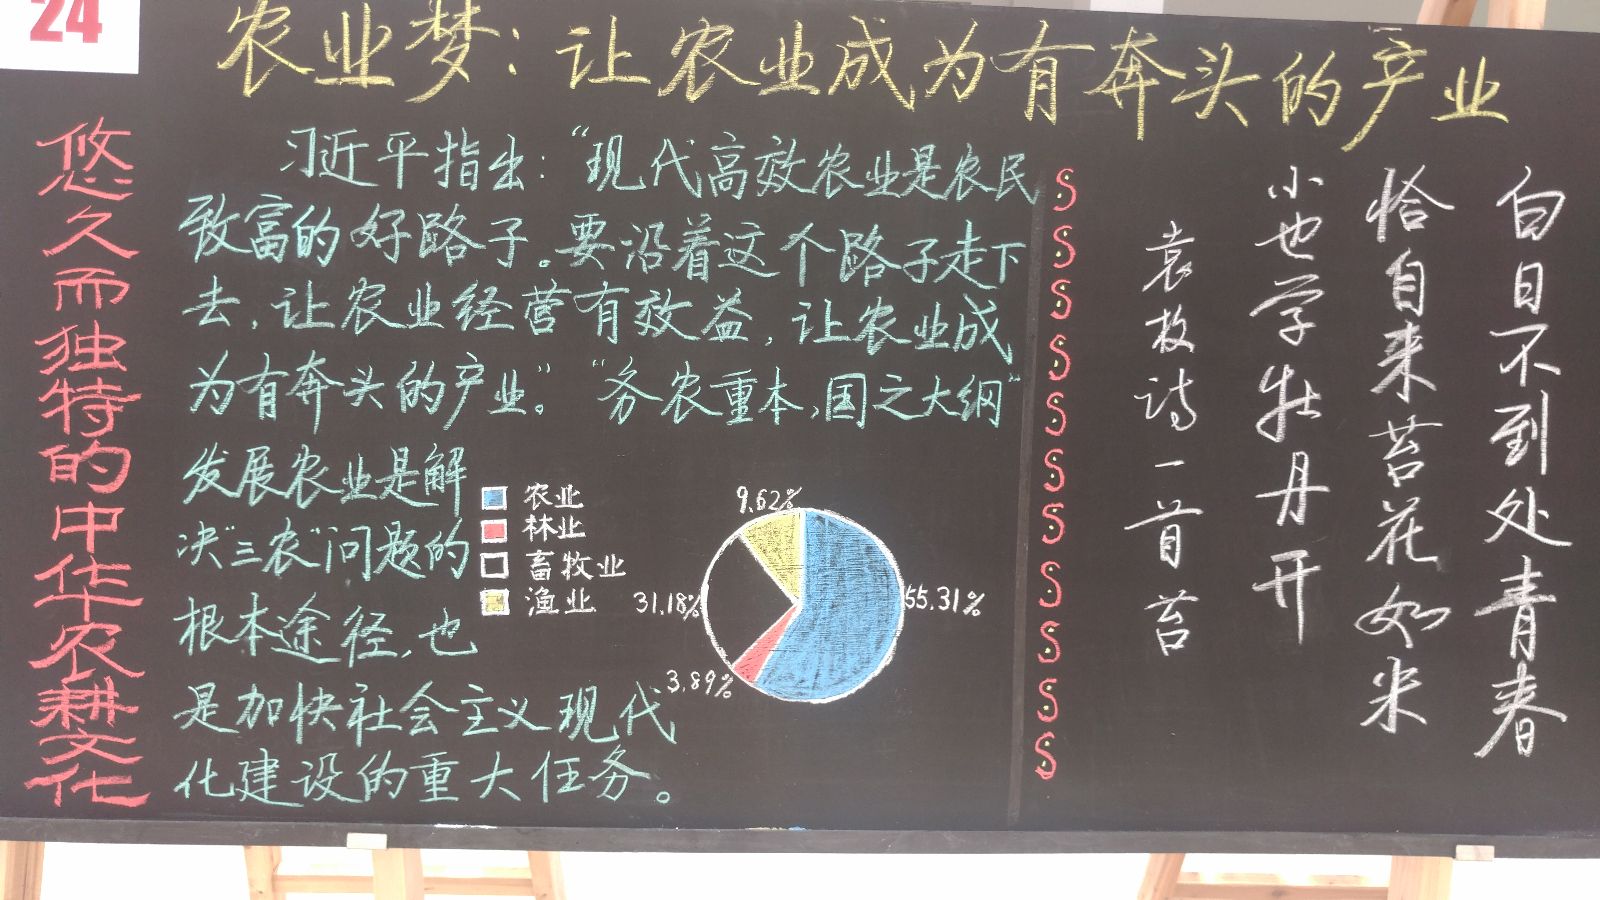 24
农业梦：让农业成为有奔头的产业
悠久而独特的中华农耕文化
习近平指出：“现代高效农业是农民
致富的好路子。要沿着这个路子走下
去，让农业经营有效益，让农业成
为有奔头的产业。”“务农重本，国之大纲”
发展农业是解
决“三农”问题的
根本途径，也
是加快社会主义现代
化建设的重大任务。
农业
林业
畜牧业
渔业
9.62%
31.18%
55.31%
3.89%
S S S S S S S S S S S
白日不到处青春
恰自来苔花如米
小也学牡丹开
袁枚诗一首苔